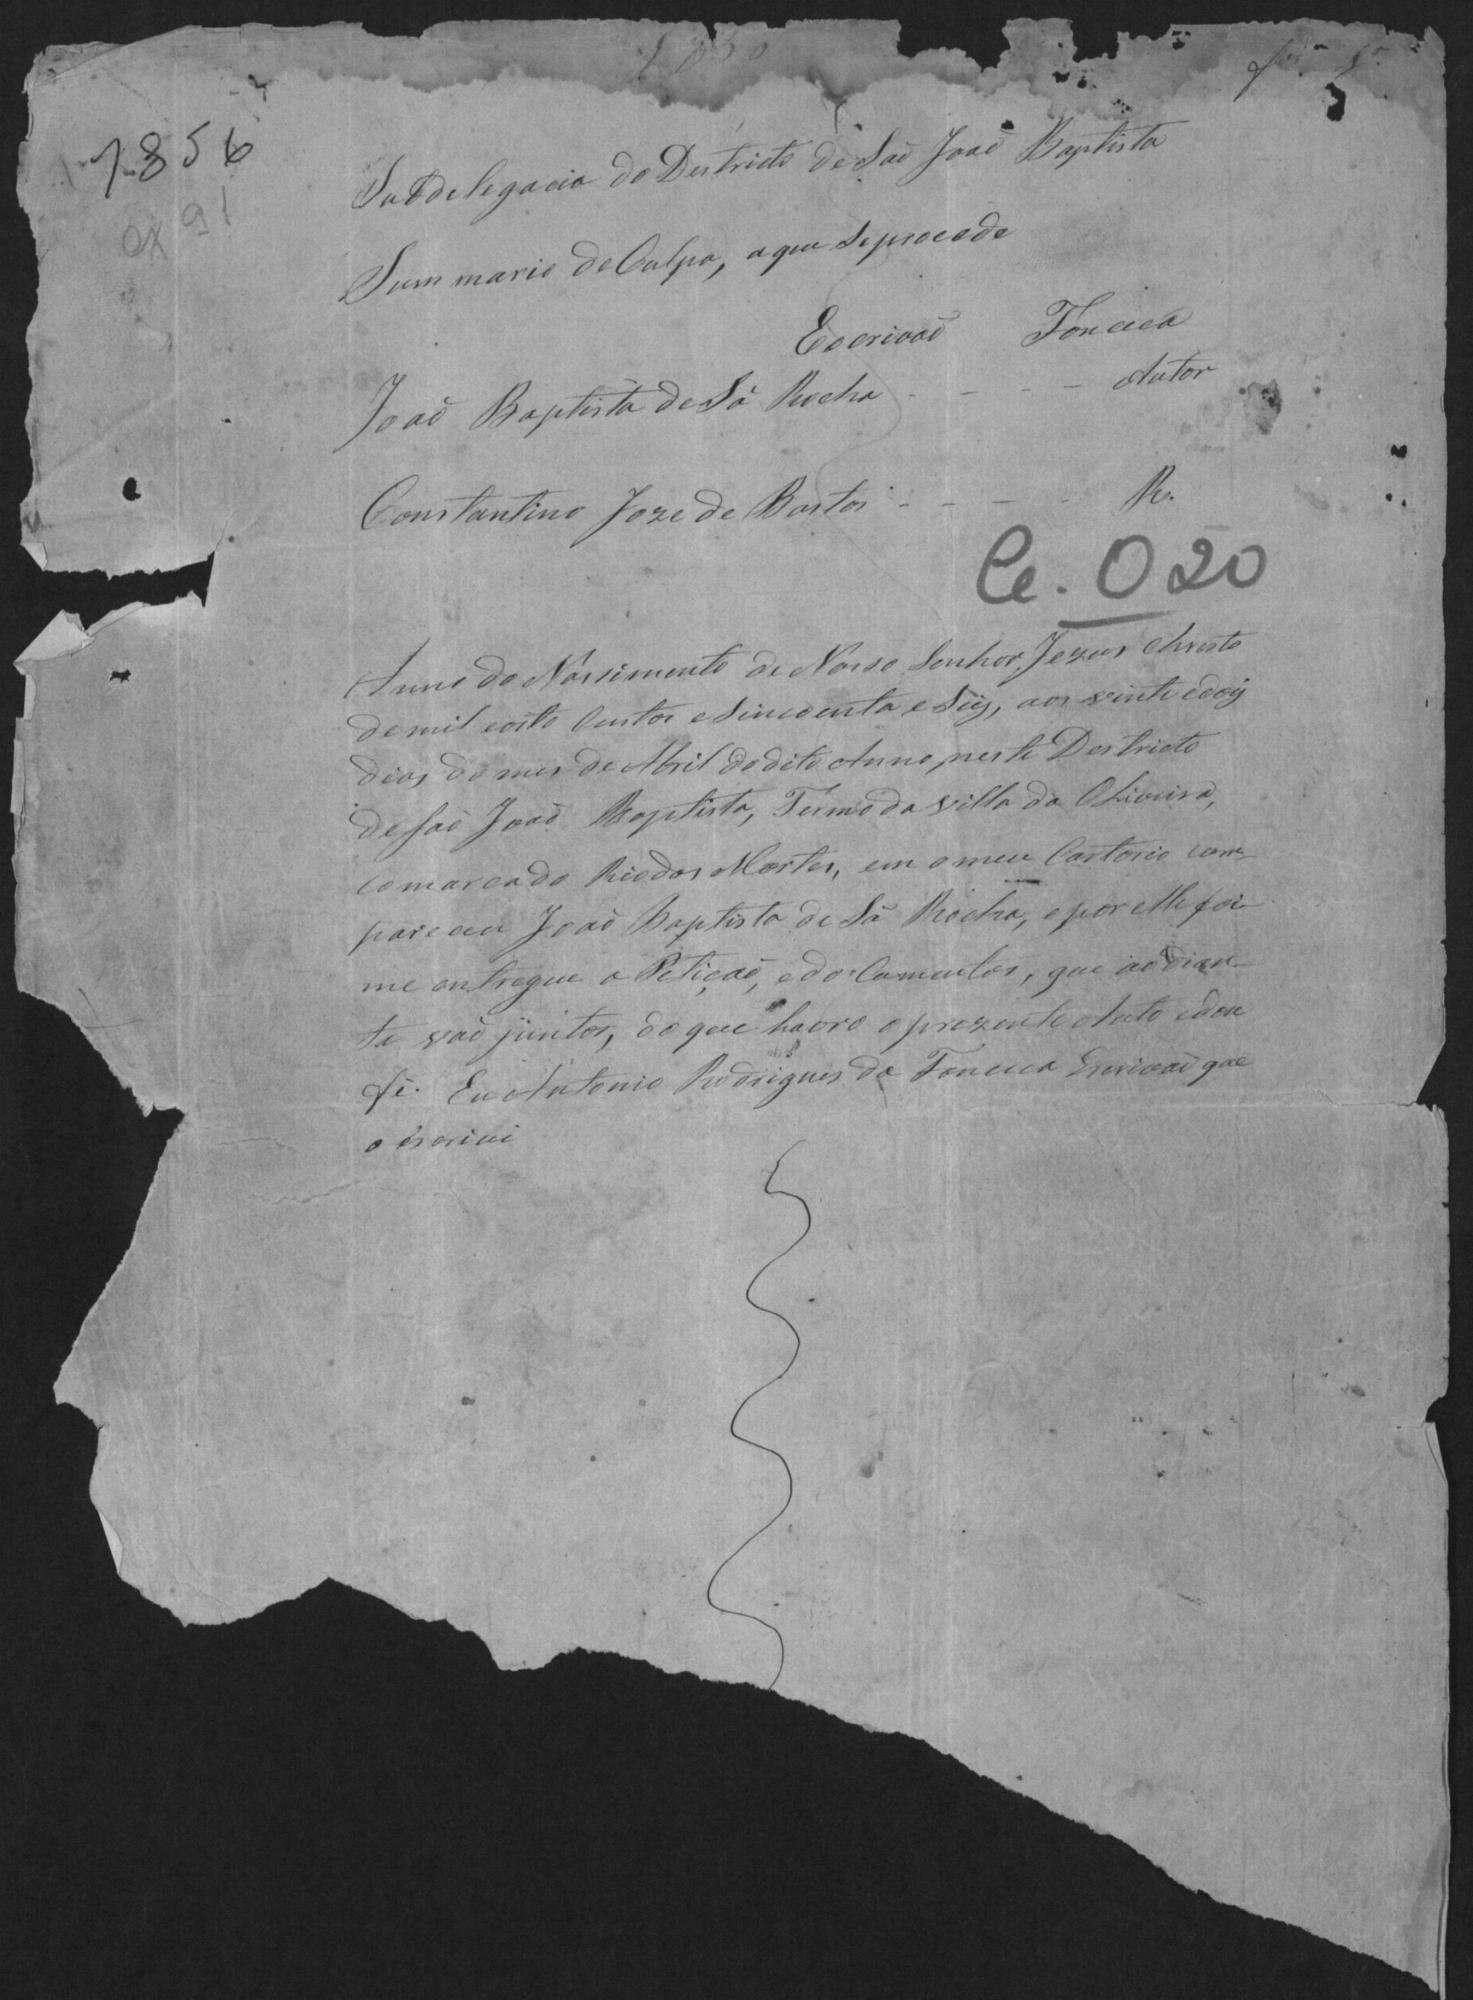 1856
Subdelegacia do Destricto de Saõ Joaõ Baptista
CX 91
Summario de Culpa, a que se procede
Escrivaõ Fonceca
Joaõ Baptista de Sá Rocha - - - - Autor
Constantino Joze de Bastos - - - - R.
Ce. 020
Anno do Nassimento de Nosso Senhor Jezus Christo
de mil e oito Centos e Sincoenta e Seis, aos vinte e dois
dias do mes de Abril do dito Anno, neste Destricto
de Saõ Joaõ Baptista, Termo da Villa da Oliveira,
comarca do Rio das Mortes, em o meu Cartorio com-
pareceu Joaõ Baptista de Sá Rocha, e por elle foi
me entregue a Petiçaõ, e do Cumentos, que ao dian-
te vaõ juntos, do que lavro o prezente Auto e dou
fé. Eu Antonio Rodrigues da Fonceca Escrivaõ que
o escrivi